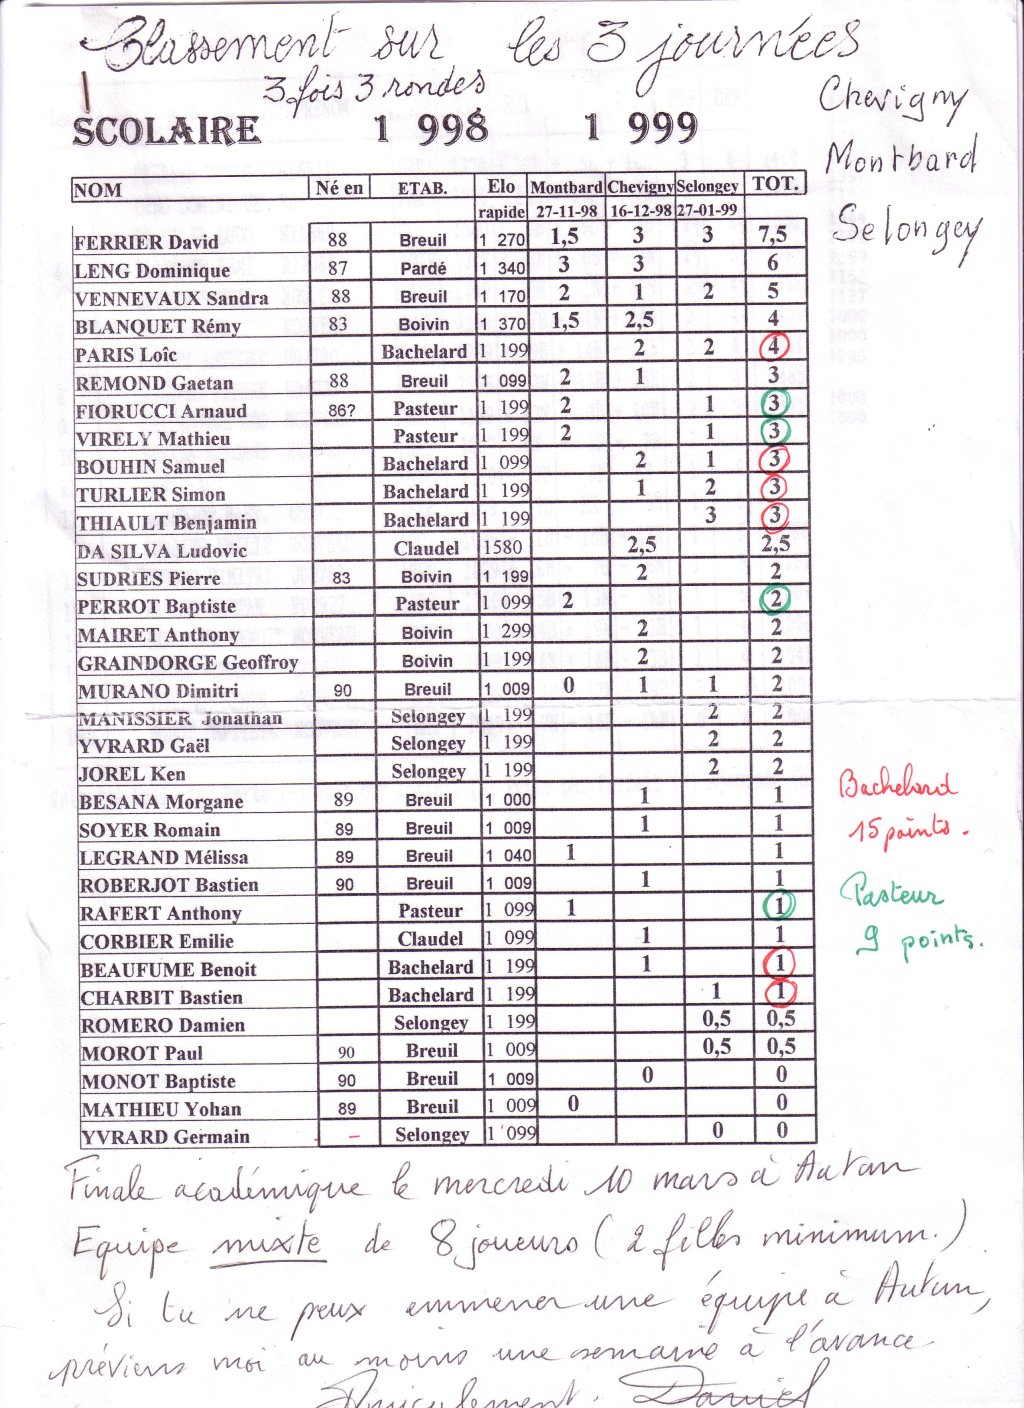 Classement sur les 3 journées
3 fois 3 rondes
Chevigny
Montbard
Selongey
SCOLAIRE 1 998 1 999
NOM Né en ETAB. Elo Montbard Chevigny Selongey TOT.
rapide 27-11-98 16-12-98 27-01-99
FERRIER David 88 Breuil 1 270 1,5 3 3 7,5
LENG Dominique 87 Pardé 1 340 3 3 6
VENNEVAUX Sandra 88 Breuil 1 170 2 1 2 5
BLANQUET Rémy 83 Boivin 1 370 1,5 2,5 4
PARIS Loîc Bachelard 1 199 2 2 4
REMOND Gaetan 88 Breuil 1 099 2 1 3
FIORUCCI Arnaud 86? Pasteur 1 199 2 1 3
VIRELY Mathieu Pasteur 1 199 2 1 3
BOUHIN Samuel Bachelard 1 099 2 1 3
TURLIER Simon Bachelard 1 199 1 2 3
THIAULT Benjamin Bachelard 1 199 3 3
DA SILVA Ludovic Claudel 1580 2,5 2,5
SUDRIES Pierre 83 Boivin 1 199 2 2
PERROT Baptiste Pasteur 1 099 2 2
MAIRET Anthony Boivin 1 299 2 2
GRAINDORGE Geoffroy Boivin 1 199 2 2
MURANO Dimitri 90 Breuil 1 009 0 1 1 2
MANISSIER Jonathan Selongey 1 199 2 2
YVRARD Gaël Selongey 1 199 2 2
JOREL Ken Selongey 1 199 2 2
BESANA Morgane 89 Breuil 1 000 1 1
SOYER Romain 89 Breuil 1 009 1 1
LEGRAND Mélissa 89 Breuil 1 040 1 1
ROBERJOT Bastien 90 Breuil 1 009 1 1
RAFERT Anthony Pasteur 1 099 1 1
CORBIER Emilie Claudel 1 099 1 1
BEAUFUME Benoit Bachelard 1 199 1 1
CHARBIT Bastien Bachelard 1 199 1 1
ROMERO Damien Selongey 1 199 0,5 0,5
MOROT Paul 90 Breuil 1 009 0,5 0,5
MONOT Baptiste 90 Breuil 1 009 0 0
MATHIEU Yohan 89 Breuil 1 009 0 0
YVRARD Germain – Selongey 1 099 0 0
Bachelard
15 points.
Pasteur
9 points.
Finale académique le mercredi 10 mars à Autun
Equipe mixte de 8 joueurs (2 filles minimum.)
Si tu ne peux emmener une équipe à Autun,
préviens moi au moins une semaine à l'avance
Amicalement. Daniel